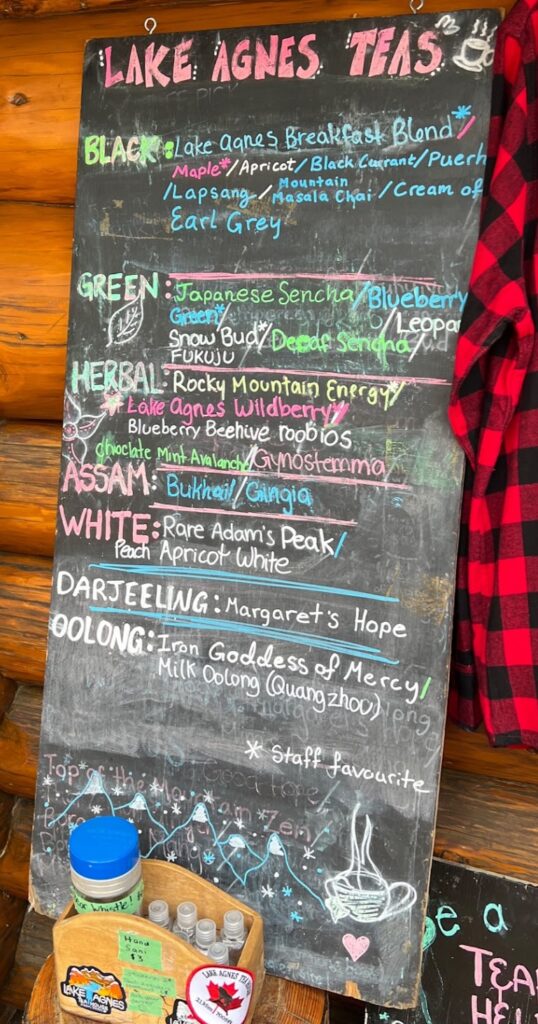 LAKE AGNES TEAS
BLACK: Lake Agnes Breakfast Blend*/
Maple*/Apricot/Black Currant/Puerh
/Lapsang/Mountain Masala Chai/Cream of
Earl Grey
GREEN: Japanese Sencha/Blueberry
Green*/ /Leopar
Snow Bud*/Decaf Sencha/
FUKUJU
HERBAL: Rocky Mountain Energy*/
*Lake Agnes Wildberry/
Blueberry Beehive roobios
Choclate Mint Avalanche/Gynostemma
ASSAM: Bukhail/Gingia
WHITE: Rare Adam's Peak/
Peach Apricot White
DARJEELING: Margaret's Hope
OOLONG: Iron Goddess of Mercy/
Milk Oolong (Quangzhou)
* Staff favourite
Top of the
Whistle
Hand
Sani
$3
LAKE AGNES
LAKE AGNES
e a
TEA
HEL